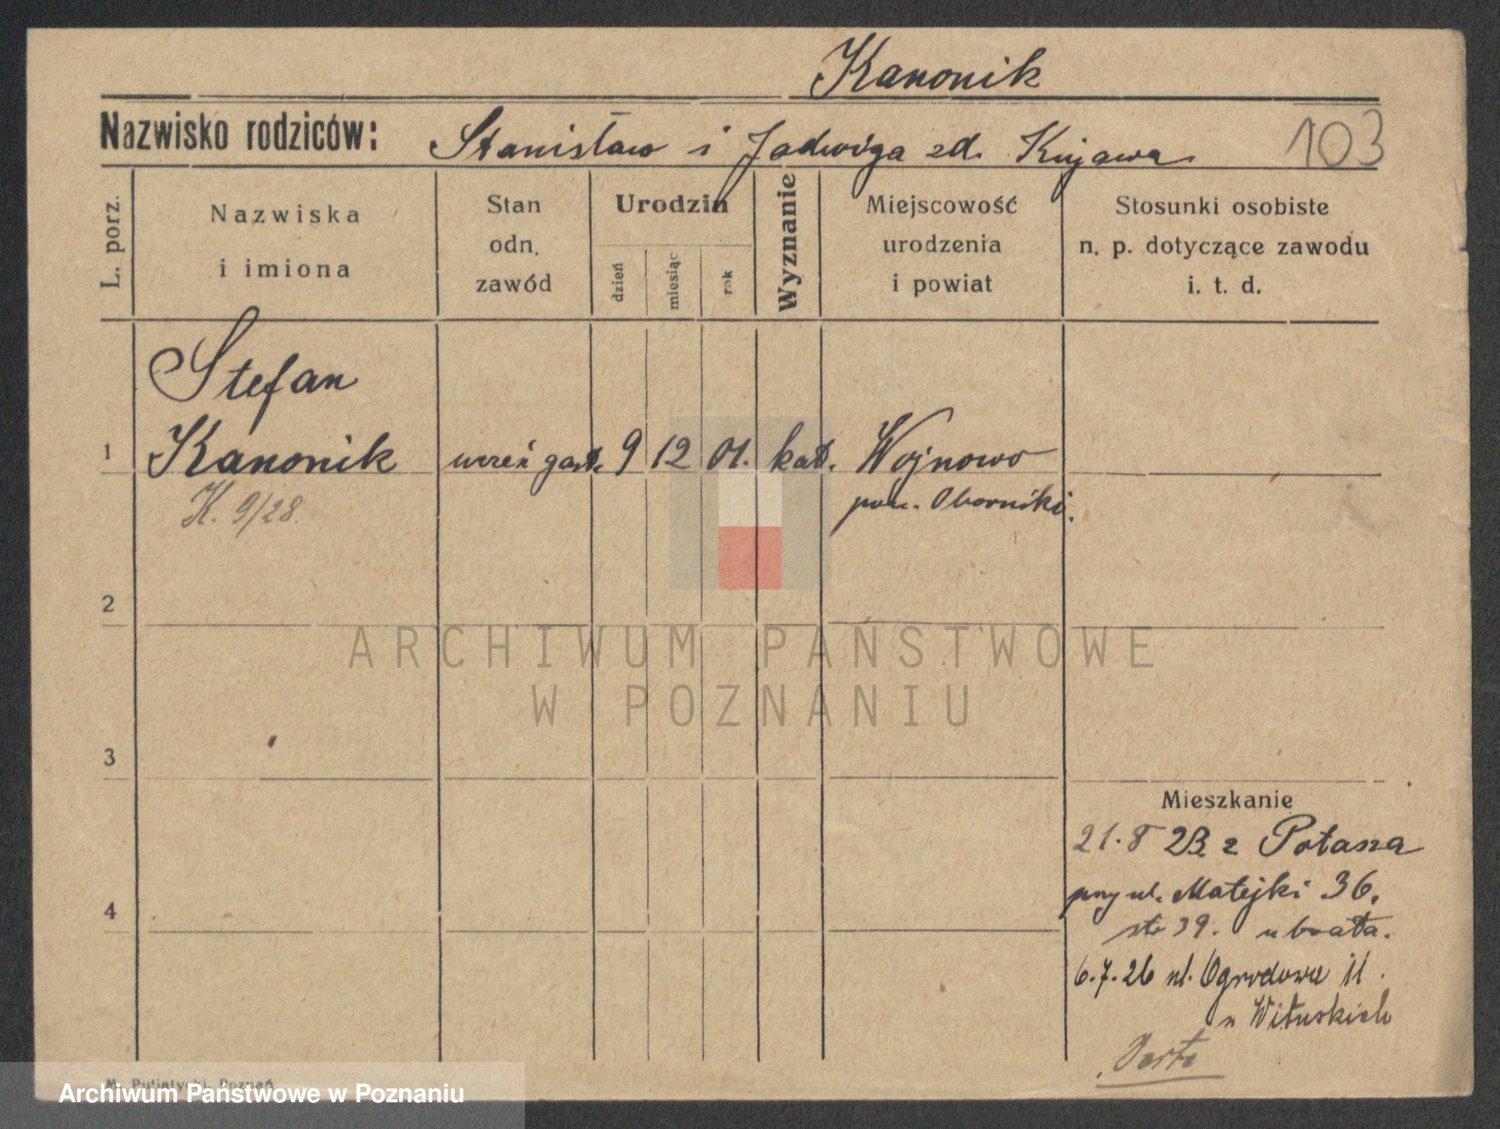 Kanonik
Nazwisko rodziców: Stanisław i Jadwiga zd. Kujawa 103
L. porz.
Nazwiska
i imiona
Stan
odn.
zawód
Urodzin
dzień
miesiąc
rok
Wyznanie
Miejscowość
urodzenia
i powiat
Stosunki osobiste
n. p. dotyczące zawodu
i. t. d.
Stefan
1 Kanonik uczeń gast. 9 12 01. kat. Wojnowo
K. 9/28. pow. Oborniki.
2
ARCHIWUM PAŃSTWOWE
W POZNANIU
3
Mieszkanie
21.8 23 z Potasza
przy ul. Matejki 36.
39. u brata.
4
6.7.26 ul. Ogrodowa 11.
u Wituskich
M. Putiatycki, Poznań
Archiwum Państwowe w Poznaniu